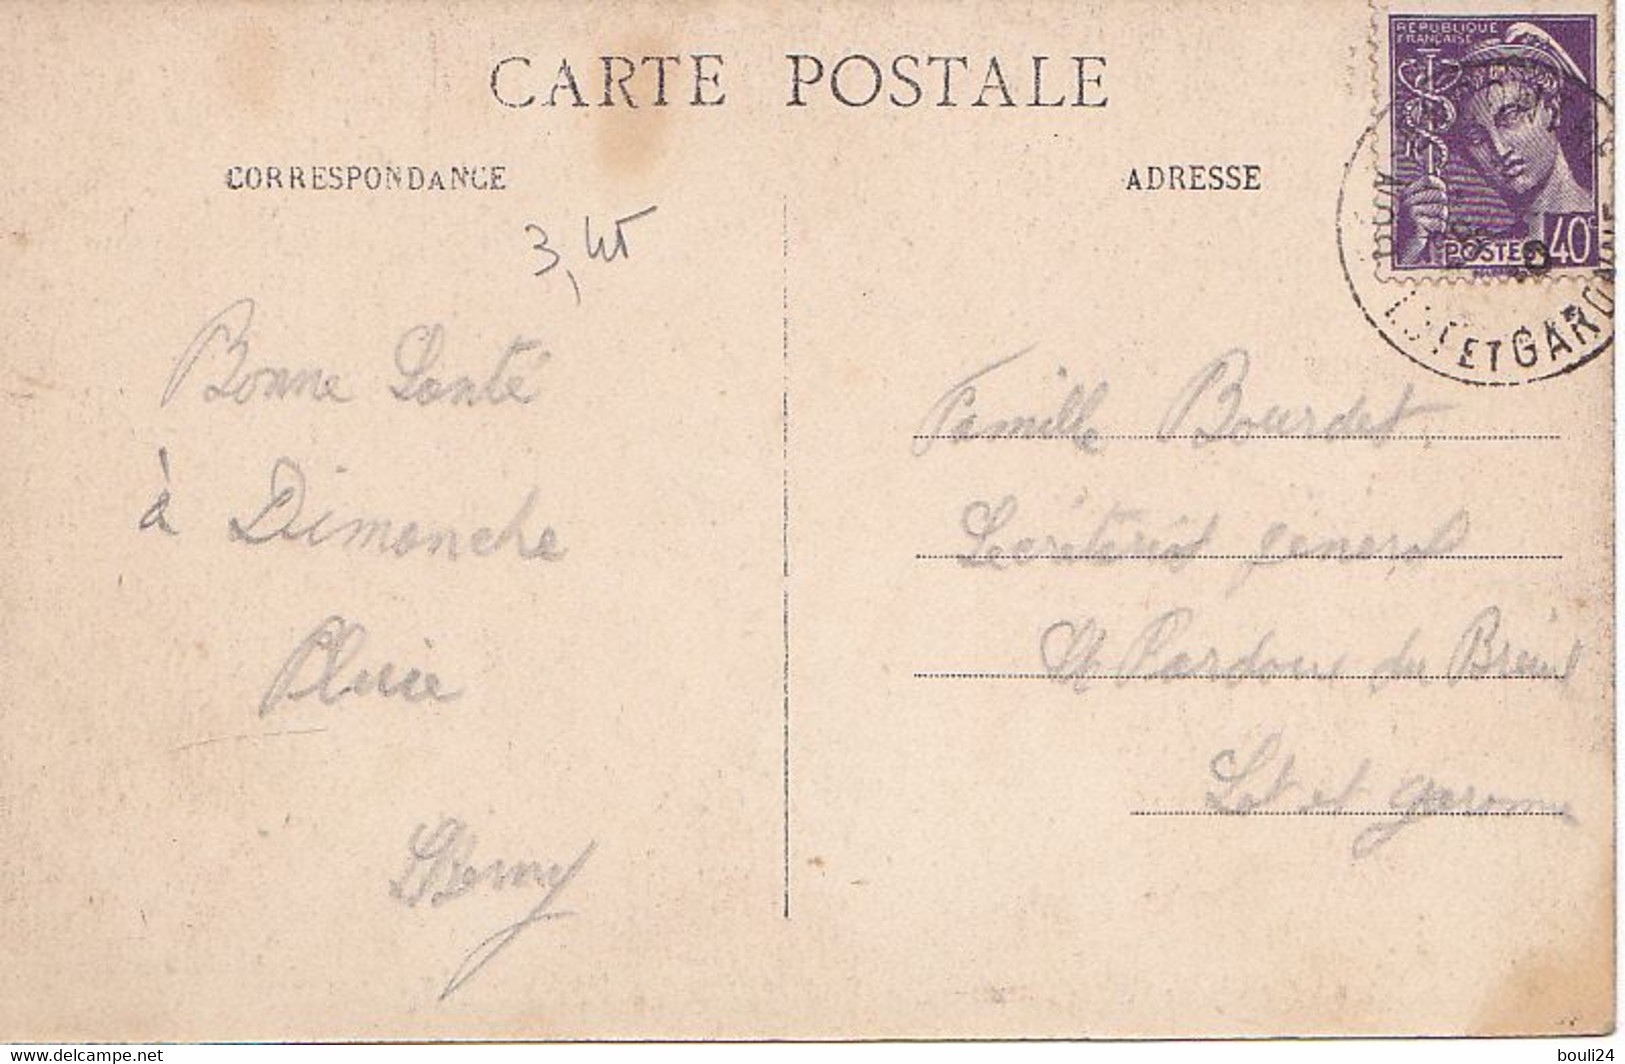 CARTE POSTALE
CORRESPONDANCE
ADRESSE
RÉPUBLIQUE
FRANÇAISE
POSTES 40c
LOT ET GARONNE
Bonne Santé
à Dimanche
Famille Bourdet
Secrétariat général
St Pardoux du Breuil
Lot et garonne
www.delcampe.net
bouli24